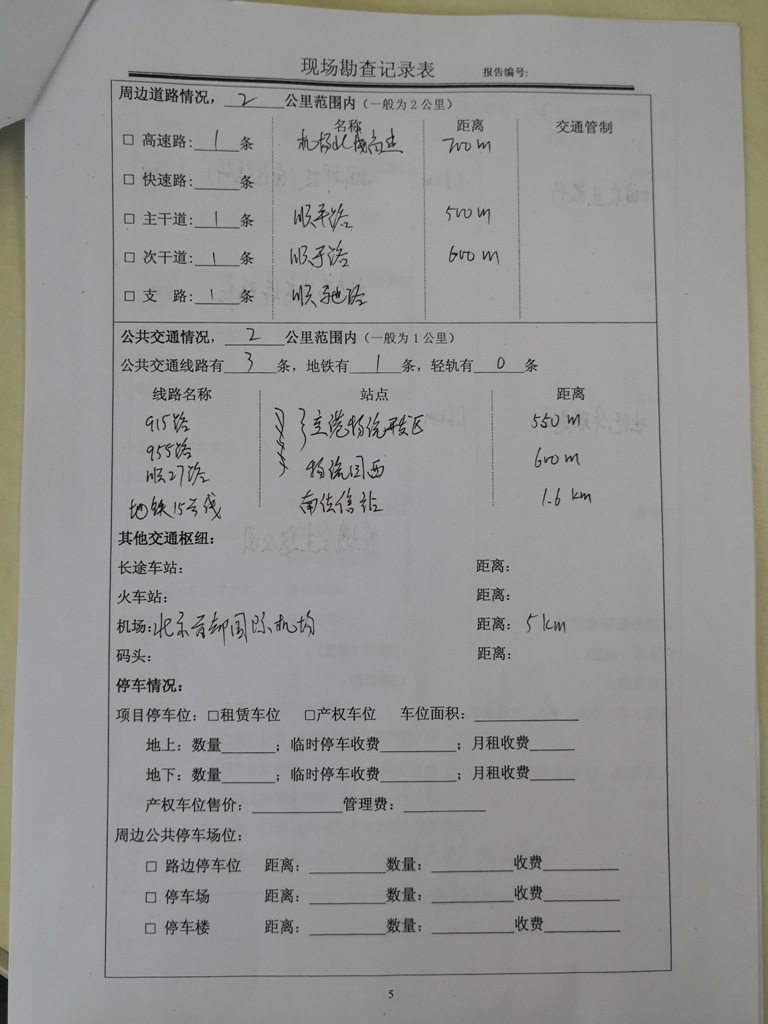 现场勘查记录表 报告编号:
周边道路情况，2公里范围内（一般为2公里）
名称 距离 交通管制
□ 高速路:1条 机场北线高速 700m
□ 快速路:条
□ 主干道:1条 顺平路 500m
□ 次干道:1条 顺于路 600m
□ 支 路:1条 顺驰路
公共交通情况，2公里范围内（一般为1公里）
公共交通线路有3条，地铁有1条，轻轨有0条
线路名称 站点 距离
915路 空港物流开发区 550m
955路
顺27路 物流园西 600m
地铁15号线 南法信站 1.6km
其他交通枢纽:
长途车站: 距离:
火车站: 距离:
机场:北京首都国际机场 距离:5km
码头: 距离:
停车情况:
项目停车位: □租赁车位 □产权车位 车位面积:
地上: 数量______; 临时停车收费______; 月租收费______
地下: 数量______; 临时停车收费______; 月租收费______
产权车位售价:______管理费:______
周边公共停车场位:
□ 路边停车位 距离:______数量:______收费______
□ 停车场 距离:______数量:______收费______
□ 停车楼 距离:______数量:______收费______
5